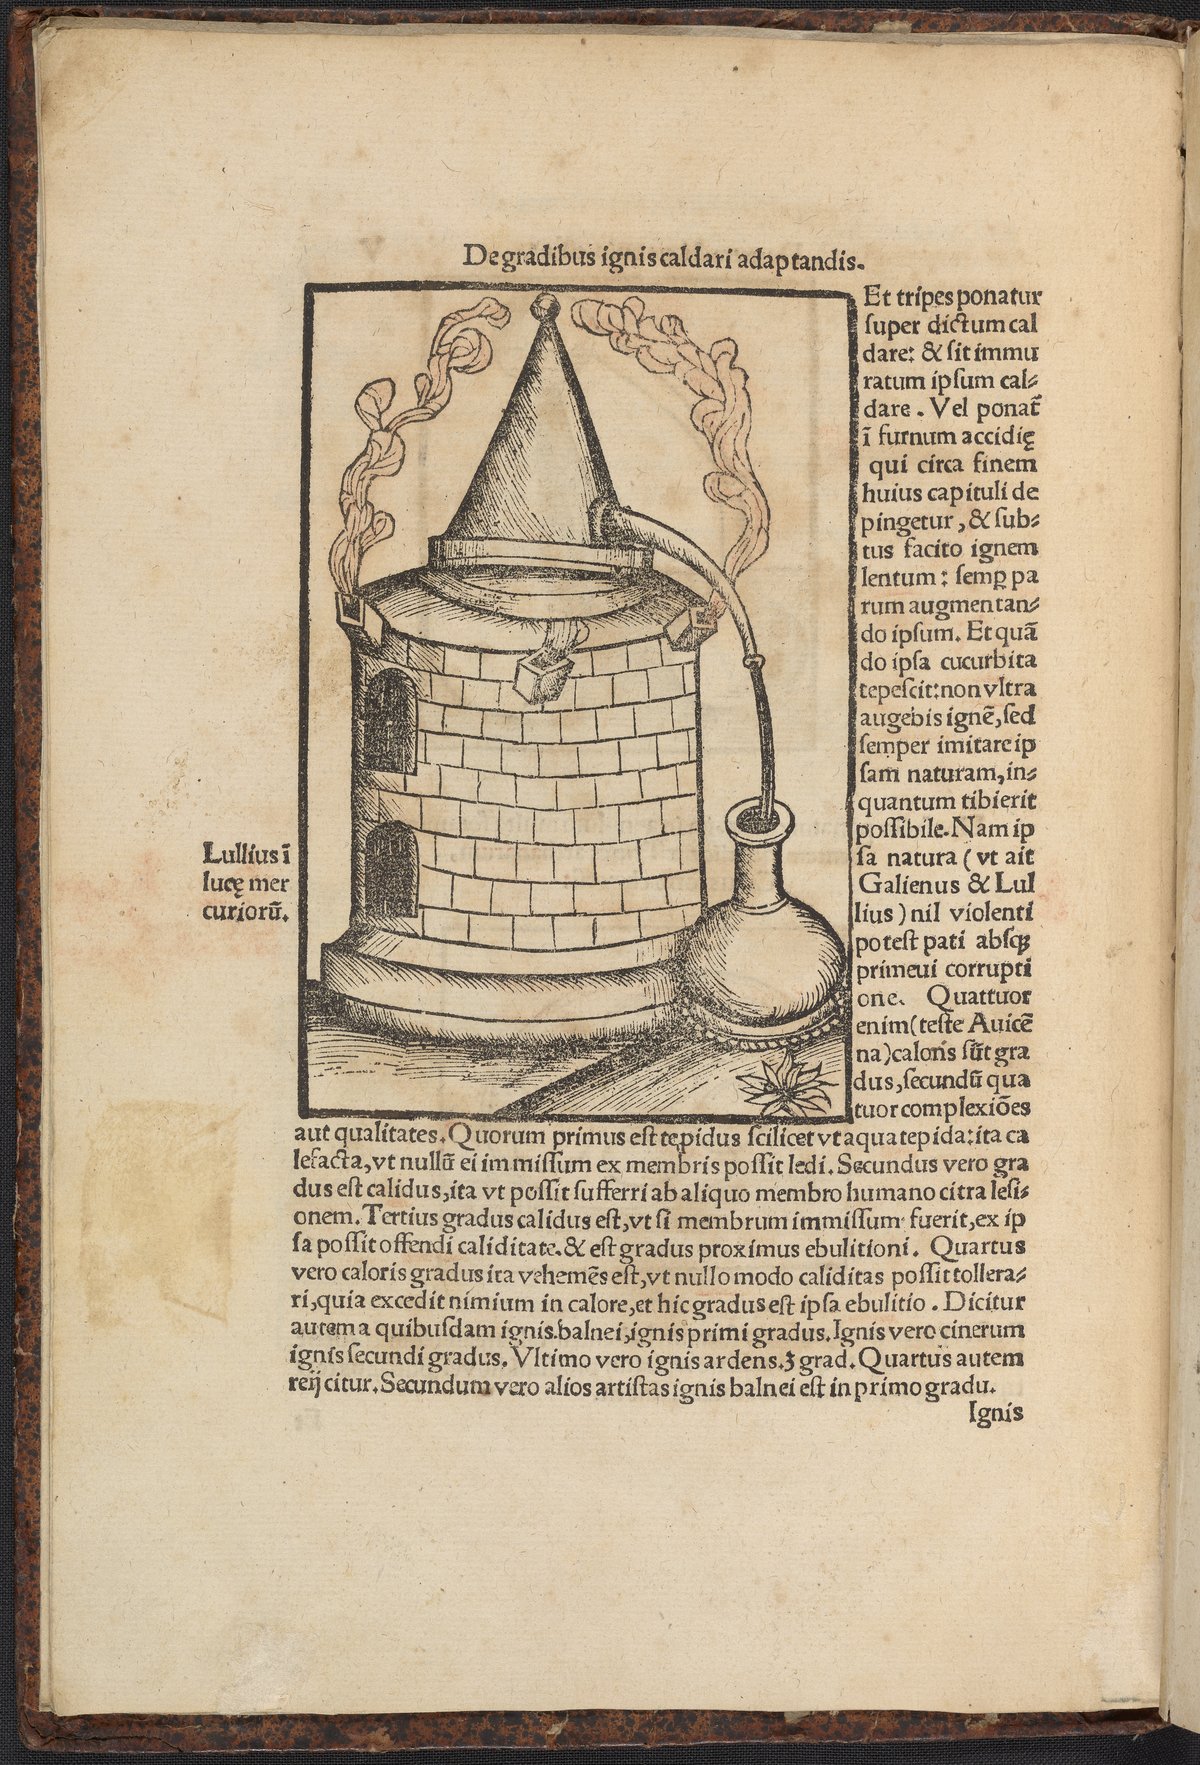 De gradibus ignis caldari adaptandis.
Et tripes ponatur
ſuper dictum cal
dare: & ſit immu
ratum ipſum cal⸗
dare . Vel ponat᷑
ī furnum accidię
qui circa finem
huius capituli de
pingetur, & ſub⸗
tus facito ignem
lentum : ſemꝑ pa
rum augmentan⸗
do ipſum. Et quā
do ipſa cucurbita
tepeſcit: non vltra
augebis ignē, ſed
ſemper imitare ip
ſam naturam, in⸗
quantum tibi erit
poſſibile. Nam ip
ſa natura ( vt ait
Galienus & Lul
lius ) nil violenti
poteſt pati abſqꝫ
primeui corrupti
one. Quattuor
enim (teſte Auicē
na) caloris ſūt gra
dus, ſecundū qua
tuor complexiōes
Lullius ī
lucę mer
curiorū.
aut qualitates. Quorum primus eſt tepidus ſcilicet vt aqua tepida: ita ca
lefacta, vt nullū ei immiſſum ex membris poſſit ledi. Secundus vero gra
dus eſt calidus, ita vt poſſit ſufferri ab aliquo membro humano citra leſi⸗
onem. Tertius gradus calidus eſt, vt ſi membrum immiſſum fuerit, ex ip
ſa poſſit offendi caliditate. & eſt gradus proximus ebulitioni . Quartus
vero caloris gradus ita vehemēs eſt, vt nullo modo caliditas poſſit tollera⸗
ri, quia excedit nimium in calore, et hic gradus eſt ipſa ebulitio . Dicitur
autem a quibuſdam ignis balnei, ignis primi gradus. Ignis vero cinerum
ignis ſecundi gradus. Vltimo vero ignis ardens .3 grad. Quartus autem
reijcitur. Secundum vero alios artiſtas ignis balnei eſt in primo gradu.
Ignis